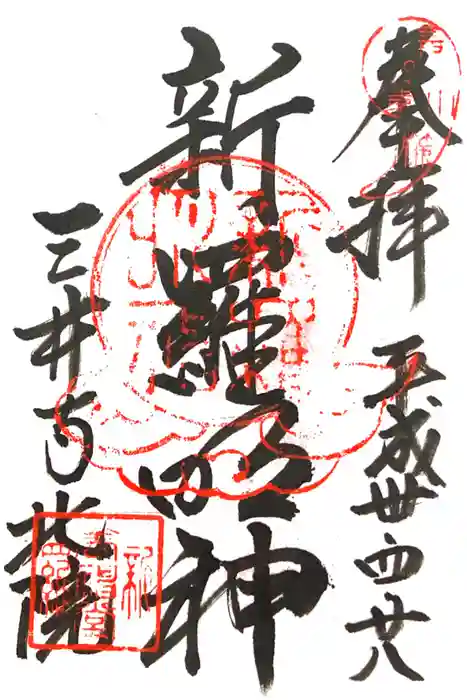 奉拝
平成卅一四廿八
新羅明神
三井寺北院